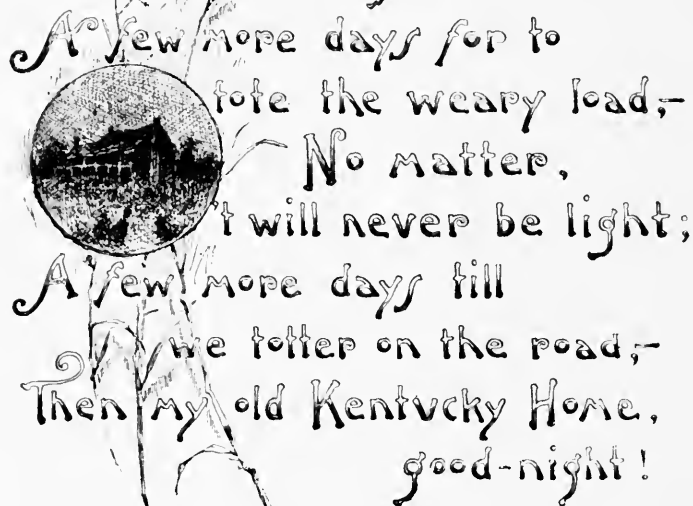 A few more days for to
tote the weary load,-
No matter,
't will never be light;
A few more days till
we totter on the road;-
Then my old Kentucky Home,
good-night!